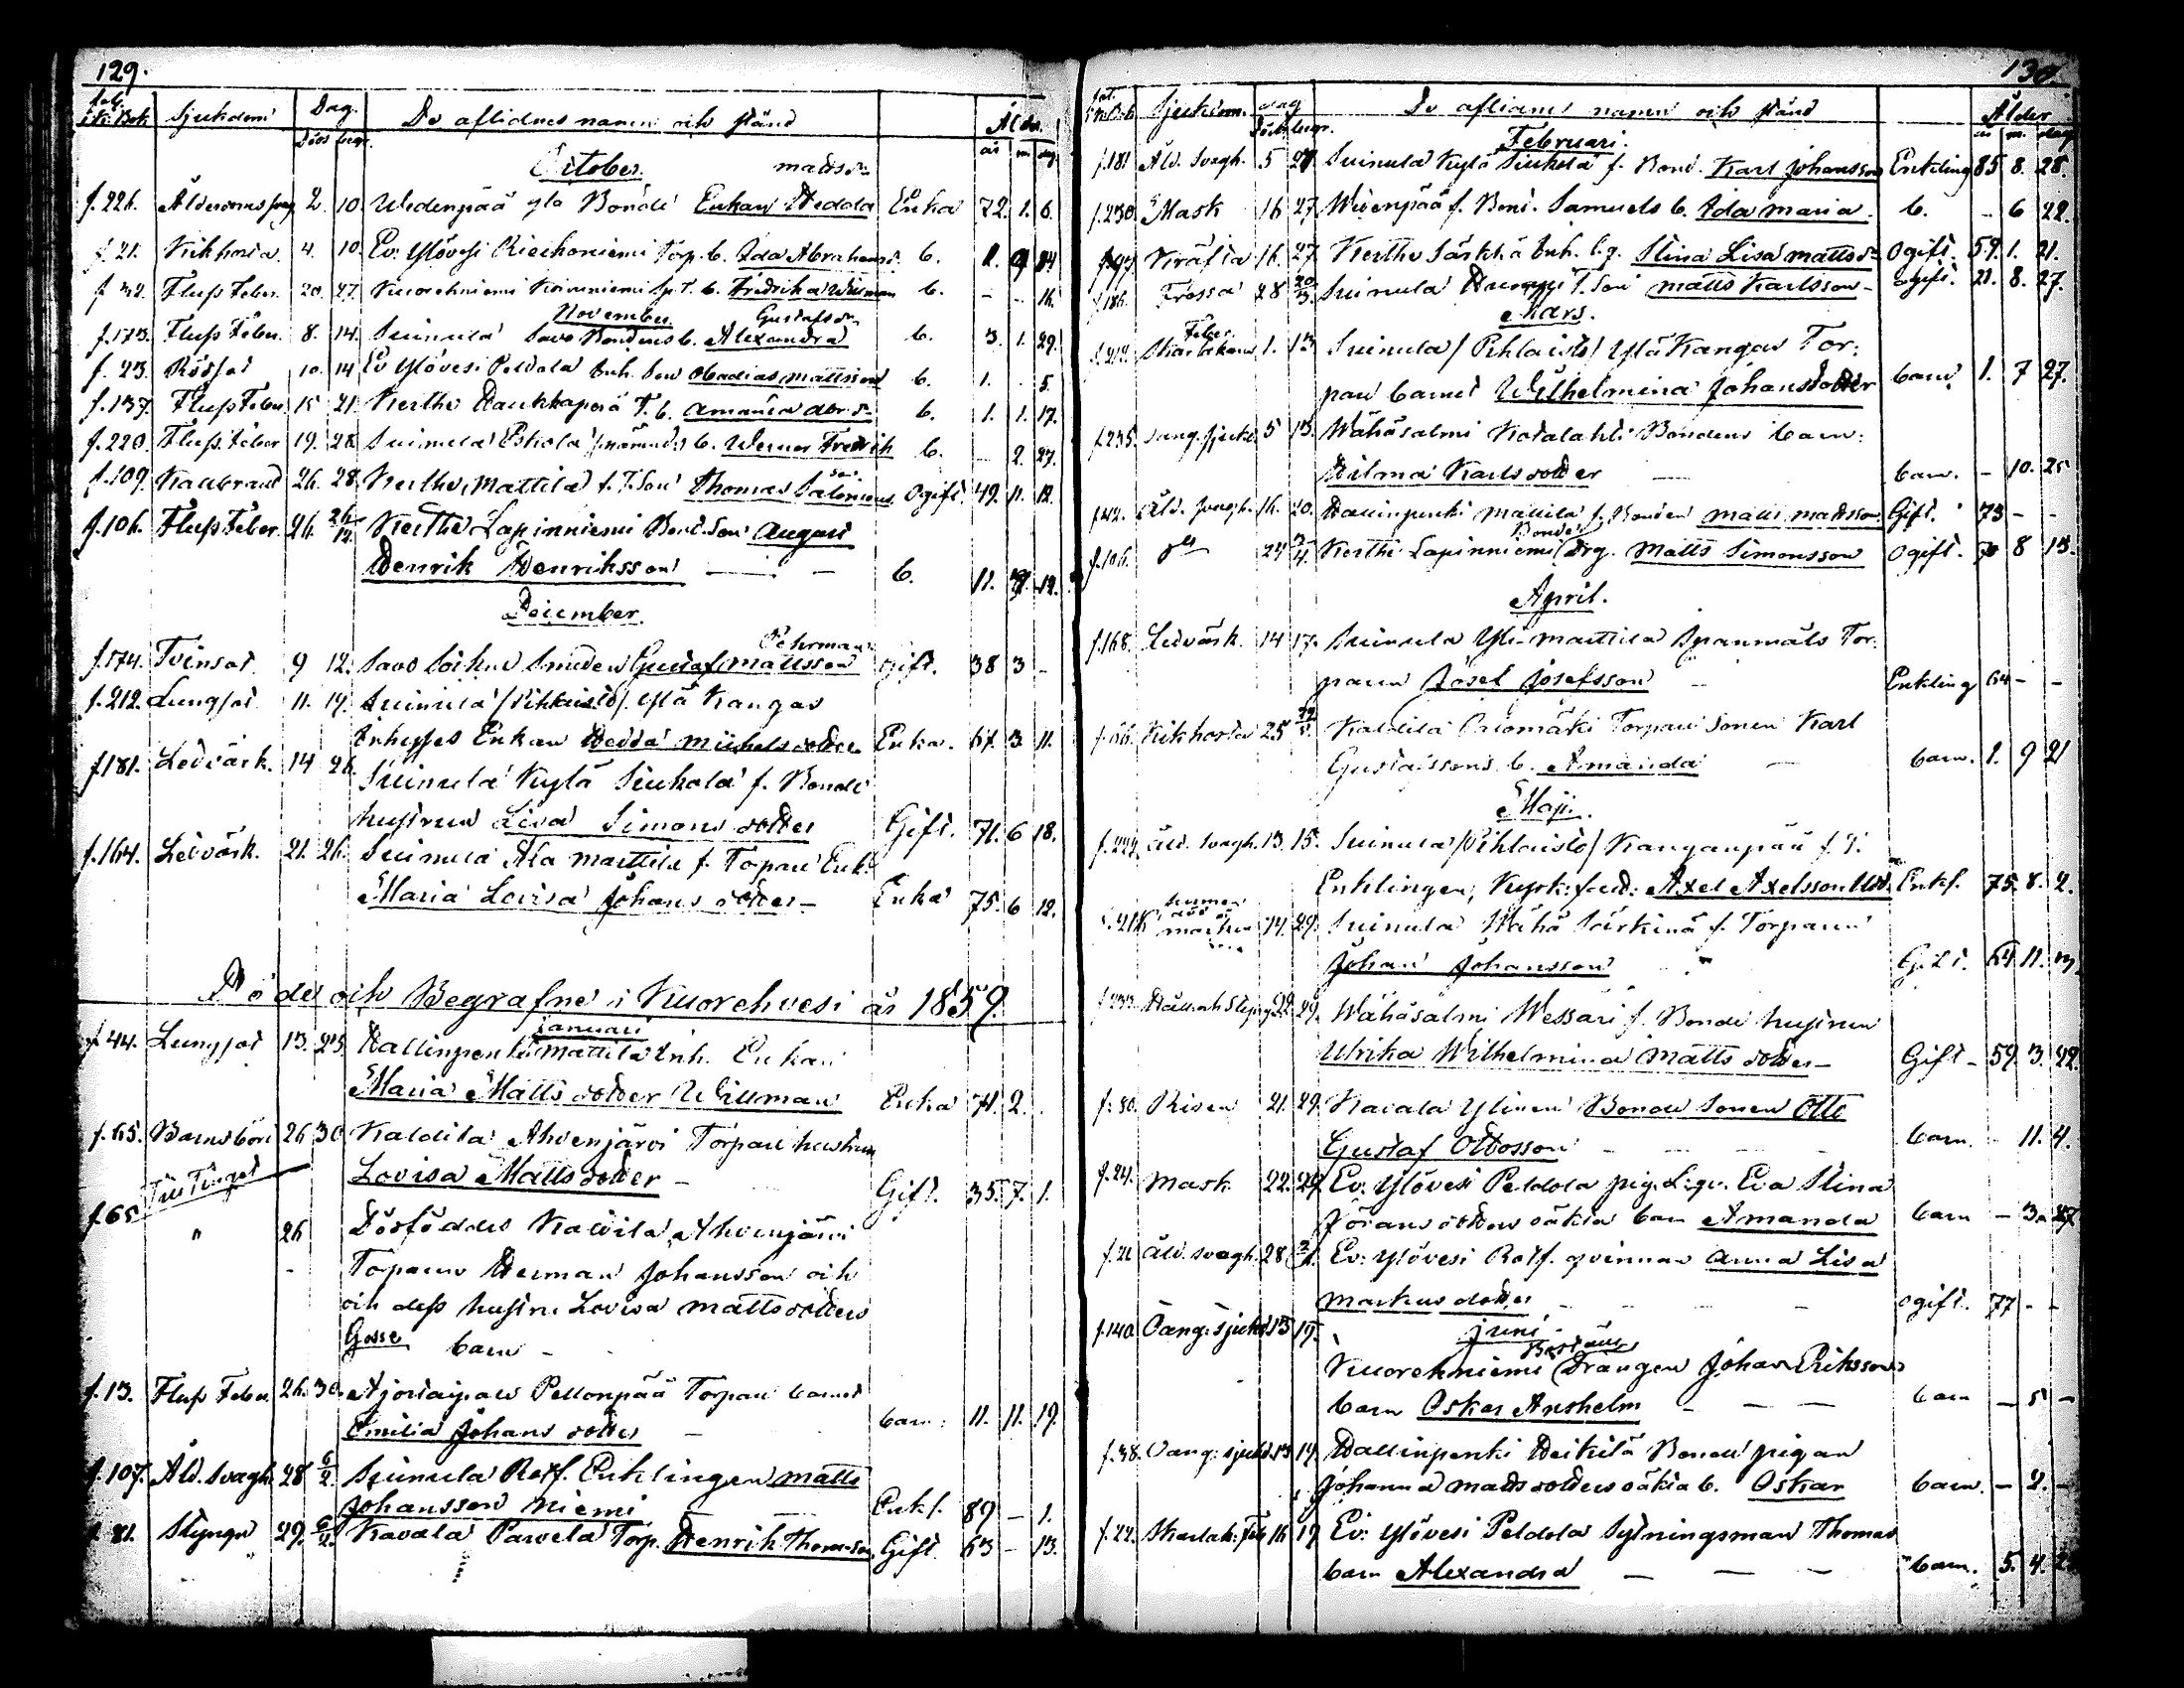 129.
fol. i K. Bok Sjukdom Dag. De aflidnes namn och stånd Ålder.
Död begr. år m. dag
October. mattsdr
f. 226. Ålderdomssvag 2. 10. Uedenpää gla Bonde Enkan Hedda Enka 72. 1. 6.
f. 21. Kikhosta. 4. 10. Ev: Ylövesi Riechoniemi Torp. b. Ida Abrahamsd. b. 1. 9 24
f 32. Fluss Feber. 20. 27. Kuorehniemi Koivuniemi b. Fredrika Wiisman b. - - 16.
November. Gustafsdr
f. 173. Fluss Feber. 8. 14. Suinula Savo Bondens b. Alexandra b. 3. 1. 29.
f. 23. Rödsot 10. 14 Ev Ylövesi Peldola Inh. Son Obadias mattsson b. 1. . 5.
f. 137. Fluss Feber 15 21. Kerthe Haukkaperä T. b. Amanda b. 1. 1. 17.
f. 220. Fluss Feber 19. 28. Suinula Eskola b. Werner Fredrik b. - 2. 27.
f. 109. Kallbrand 26. 28. Kerthe Mattila f. T. Son Thomas Salomons Ogift. 49. 11. 12.
f. 106. Fluss Feber. 26. 26/12 Kerthe Lapinniemi Bond. Son August
Henrik Henriksson — - b. 11. 12.
December.
Pehrman
f. 174. Tvinsot 9 12. Savo Soikun Smeden Gustaf Mattsson Gift. 38 3 -
f. 212. Lungsot 11. 19. Suinula /Pihlaisto/ Ylä Kangas
Inhyses Enkan Hedda Michelsdotter Enka. 67. 3 11.
f. 181. Ledvärk. 14 26. Suinula Kylä Siukola f. Bonde
hustrun Lisa Simonsdotter Gift. 71. 6 18.
f. 164. Ledvärk. 21. 26. Suinula Ala Marttila f. Torpare Enk.
Maria Lovisa Johansdotter - Enka 75. 6 12.
Döde och Begrafne i Kuorehvesi år 1859.
Januari
f 44. Lungsot 13. 23. Hallinpenki Mattila Inh. Enkan
Maria Mattsdotter Willman Enka 71. 2.
f. 65. Barnsbörd 26 30 Kaldila Ahvenjärvi Torpare hustrun
Lovisa Mattsdotter - Gift. 35. 7. 1.
Till Tinget
f. 65 " 26 Dödföddes Kaldila Ahvenjärvi
Torparen Herman Johansson och
och dess hustru Lovisa Mattsdotters
Gosse barn -
f. 13. Fluss Feber. 26. 30. Ajostaipale Pellonpää Torpare barnet
Emilia Johansdotter - barn. 11. 11. 19.
f. 107. Åld. svagh. 28 6/2. Suinula Rotf. Enklingen Matts
Johansson Niemi Enkl. 89 - 1.
f. 81. Styngn 29. 6/2. Kavala Pavela Torp. Henrik Thomsson. Gift. 63 - 13.
130.
fol. i K. Bok Sjukdom. dag De aflidnes namn och stånd Ålder
Död begr. år m. dag
Februari.
f. 181 Åld. svagh. 5 27 Suinula Kylä Siukola f. Bond. Karl Johansson Enkling 85 8. 28.
f. 230. Mask 16 27. Wedenpää f. Bond. Samuels b. Ida Maria. b. - 6 22.
f. 94 Kräfta 16. 27. Kerthe Särkkä Inh. Stina Lisa Mattsdr Ogift. 59. 1. 21.
f. 186. Frossa 28 20/3. Suinula T. Son Matts Karlsson - Ogift. 21. 8. 27.
Mars.
f. 212. Skarlakans Feber 1. 13 Suinula /Pihlaisto/ Ylä Kangas Tor:
pare barnet Wilhelmina Johansdotter barn 1. 7 27.
f. 235. sjukd. 5 13. Wähäsalmi Kotalahti Bondens barn:
Hilma Karlsdotter — barn. - 10. 25
f. 42. Åld. svagh. 16. 20. Hallinpenki Mattila f. Bonden Matts Mattsson. Gift. 73 - -
f. 106. 24 3/4 Kerthe Lapinniemi Bonde Drg. Matts Simonsson Ogift. 70 8 13.
April.
f. 168. Ledvärk. 14 17. Suinula Yli-Marttila Spanmåls Tor:
paren Josef Josefsson - Enkling 64 - -
f. 66. Kikhosta 25 22/5. Kaldila Palomäki Torpare Sonen Karl
Gustafssons b. Amanda — barn. 1. 9 21
Maji.
f. 224 Åld. svagh. 13. 15. Suinula /Pihlaisto/ Kanganpää f. T.
Enklingen, Axel Axelsson Enkl. 75. 8. 2.
14. 29. Suinula Wähä Särkimä f. Torparen
Johan Johansson Gift. 64 11. 3.
f. 233. Håll och Styng 22. 29. Wähäsalmi Messari f. Bonde hustrun
Ulrika Wilhelmina Mattsdotter - Gift - 59. 3. 22.
f. 80. Risen 21. 29. Kavala Ylinen Bonde Sonen Otto
Gustaf Ottosson barn. - 11. 4.
f. 24. Mask 22. 29. Ev: Ylövesi Peldola pig. Eva Stina
Jöransdotters oäkta barn Amanda barn - 3. 27
f. 21 Åld. svagh. 28 Ev: Ylövesi Rotf. qvinnan Anna Lisa
Markusdotter Ogift. 77 - -
Juni
f. 140. Oang: sjukd. 13 19. Kuorehniemi Drängen Johan Erikssons
barn Oskar Anshelm - - barn - 5 -
f. 38. Oang: sjukd. 13 19. Hallinpenki Heikilä Bonde pigan
Johanna Mattsdotters oäkta b. Oskar barn. - 2. -
f. 22. Skarlak: Feb 16 19 Ev: Ylövesi Peldola Sytningsman Thomas
barn Alexandra - - - barn. 5. 4.